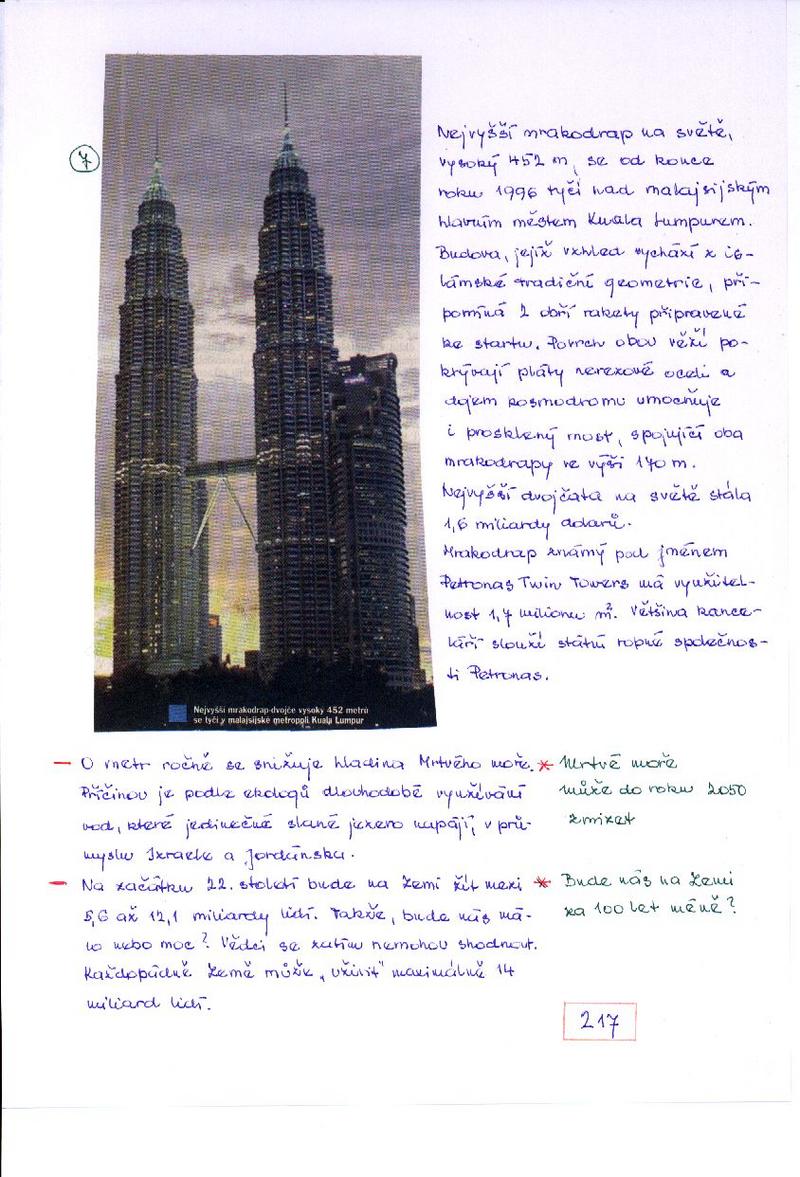 7
Nejvyšší mrakodrap na světě,
vysoký 452 m, se od konce
roku 1996 tyčí nad malajsijským
hlavním městem Kuala Lumpurem.
Budova, jejíž vzhled vychází z is-
lámské tradiční geometrie, při-
pomíná 2 obří rakety připravené
ke startu. Povrch obou věží po-
krývají pláty nerezové oceli a
dojem kosmodromu umocňuje
i prosklený most, spojující oba
mrakodrapy ve výši 170 m.
Nejvyšší dvojčata na světě stála
1,6 miliardy dolarů.
Mrakodrap známý pod jménem
Petronas Twin Towers má využitel-
nost 1,7 milionu m². Většina kance-
láří slouží státní ropné společnos-
ti Petronas.
Nejvyšší mrakodrap-dvojče vysoký 452 metrů
se tyčí v malajsijské metropoli Kuala Lumpur
- O metr ročně se snižuje hladina Mrtvého moře.
Příčinou je podle ekologů dlouhodobé využívání
vod, které jedinečné slané jezero napájí, v prů-
myslu Izraele a Jordánska.
* Mrtvé moře
může do roku 2050
zmizet
- Na začátku 22. století bude na Zemi žít mezi
5,6 až 12,1 miliardy lidí. Takže, bude nás má-
lo nebo moc? Vědci se zatím nemohou shodnout.
Každopádně Země může "uživit" maximálně 14
miliard lidí.
* Bude nás na Zemi
za 100 let méně?
217